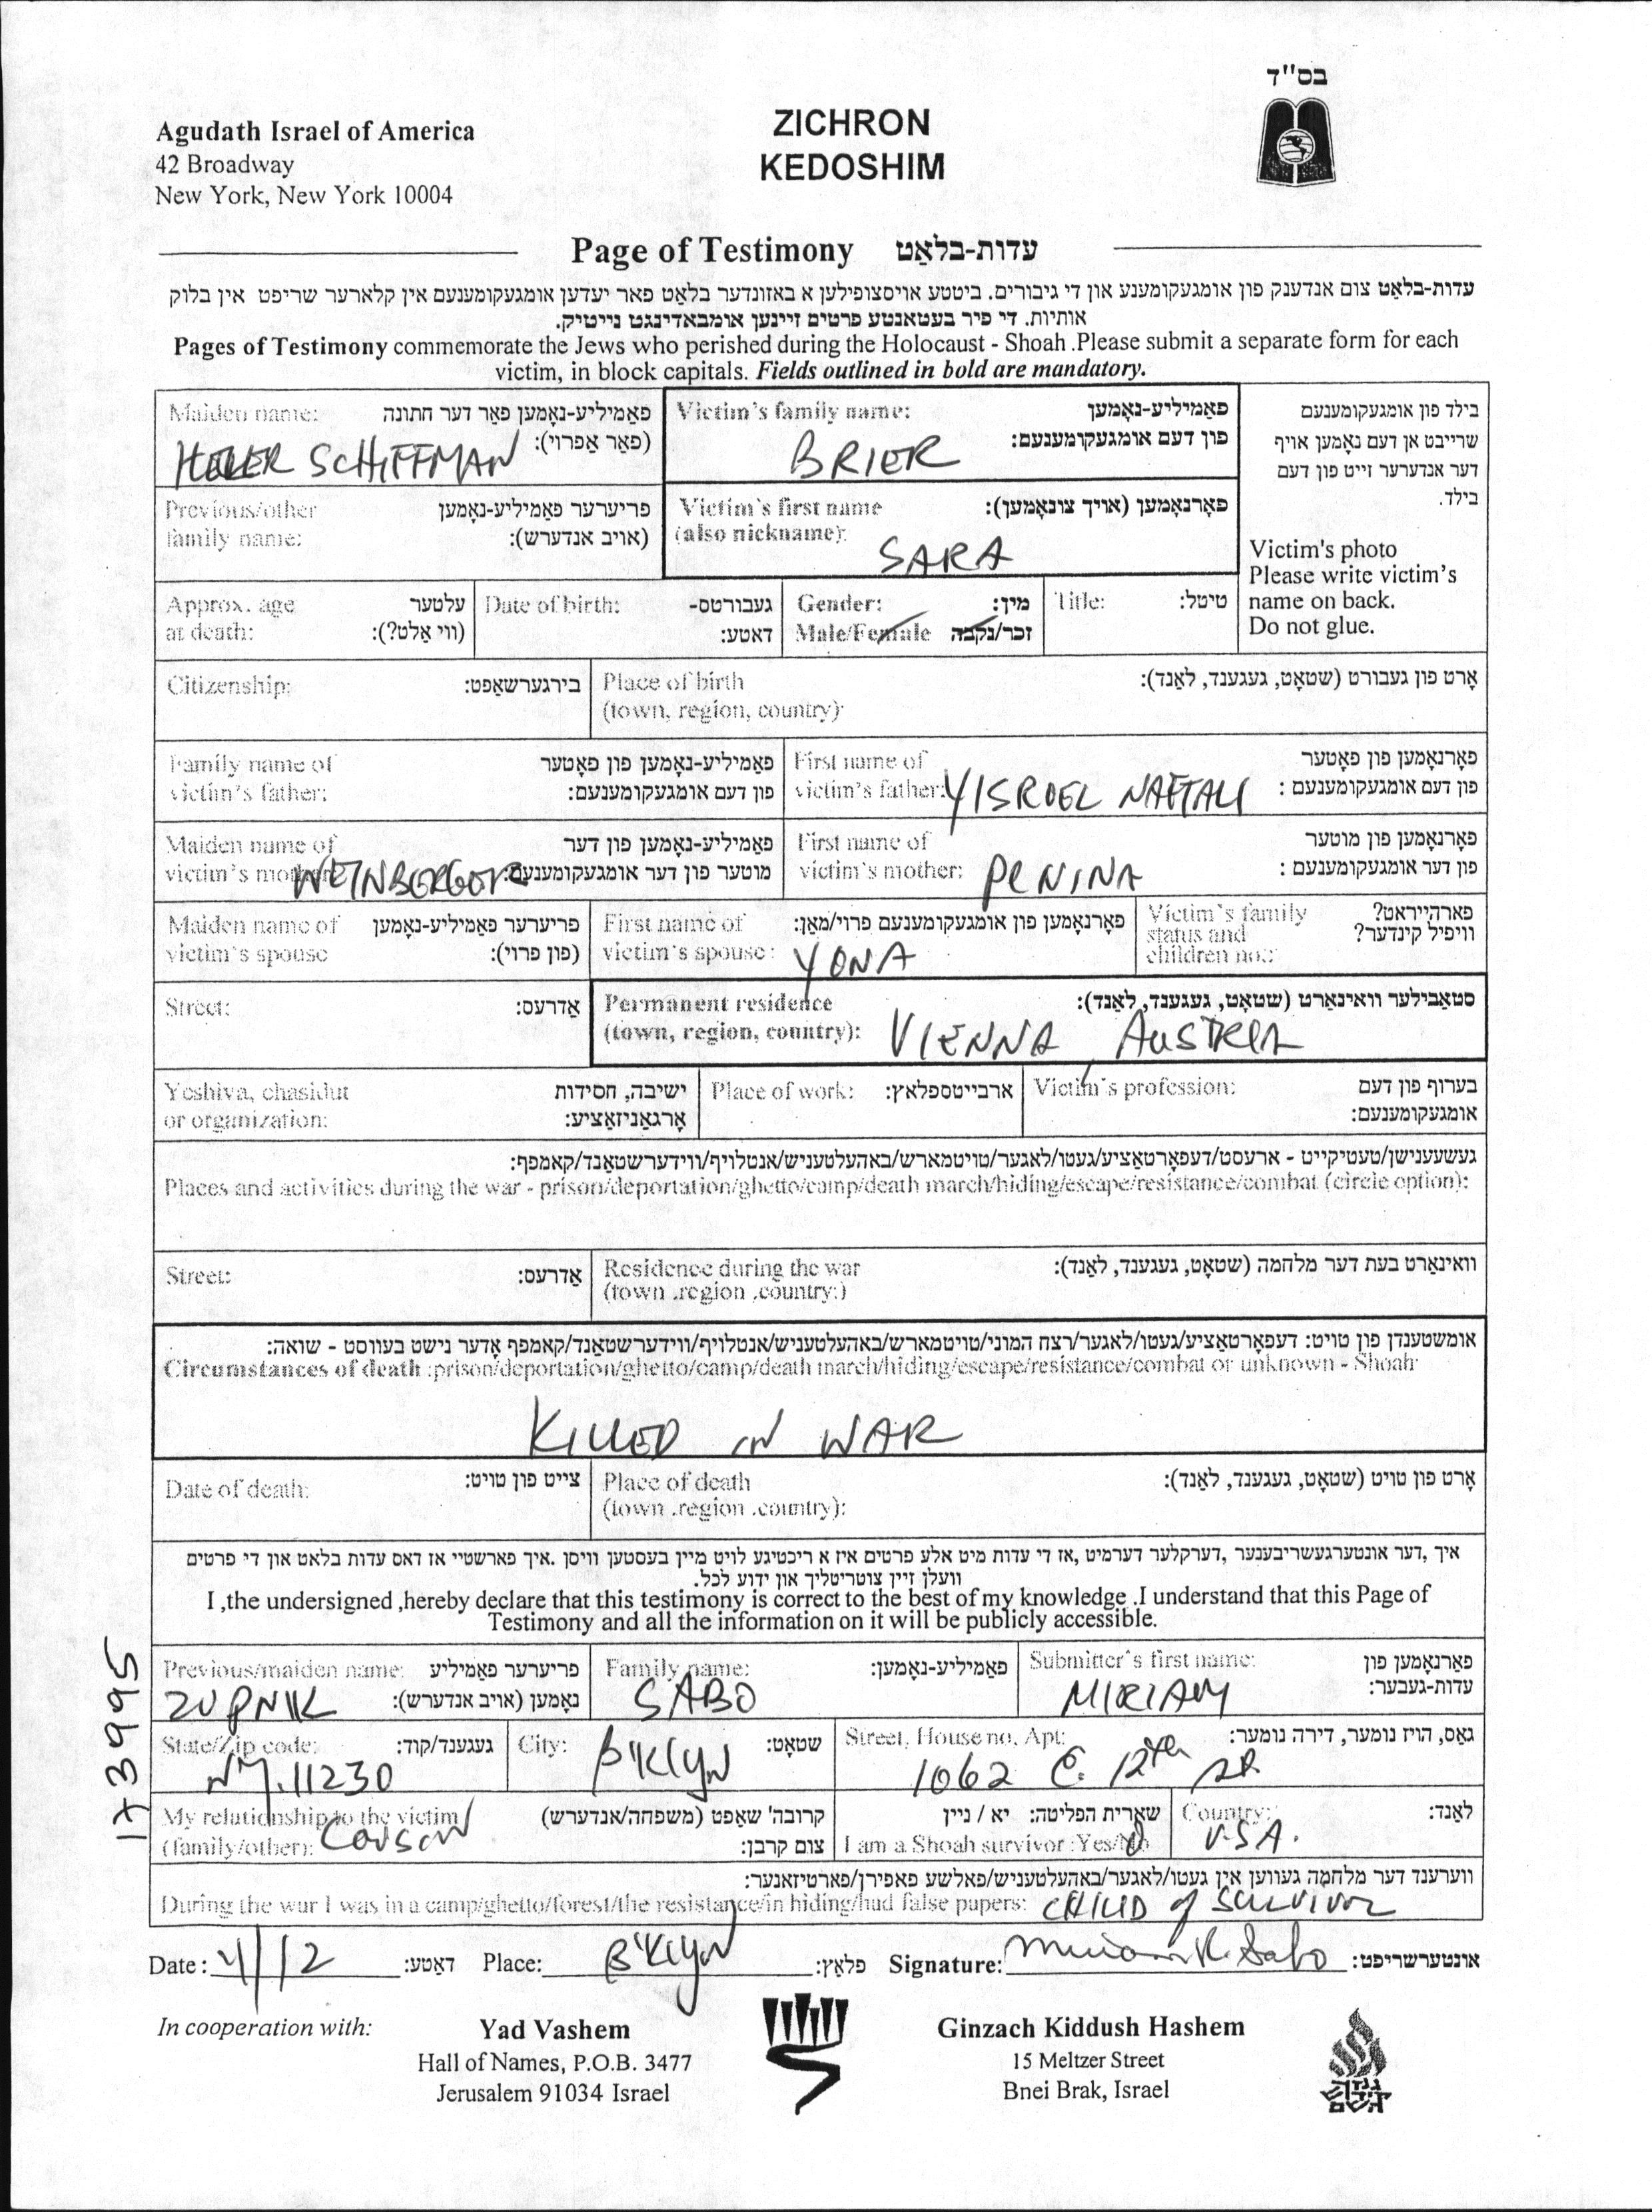 בס"ד
Agudath Israel of America
42 Broadway
New York, New York 10004
ZICHRON
KEDOSHIM
Page of Testimony עדות-בלאַט
עדות-בלאַט צום אנדענק פון אומגעקומענע און די גיבורים. ביטטע אויסצופילען א באזונדער בלאַט פאר יעדען אומגעקומענעם אין קלארער שריפט אין בלוק
אותיות. די פיר בעטאנטע פרטים זיינען אומבאדינגט נייטיק.
Pages of Testimony commemorate the Jews who perished during the Holocaust - Shoah .Please submit a separate form for each
victim, in block capitals. Fields outlined in bold are mandatory.
Maiden name: פאַמיליע-נאָמען פאַר דער חתונה
(פאַר אַפרוי):
HELLER SCHIFFMAN
Victim's family name: פאַמיליע-נאָמען
פון דעם אומגעקומענעם:
BRIER
בילד פון אומגעקומענעם
שרייבט אן דעם נאָמען אויף
דער אנדערער זייט פון דעם
בילד.
Victim's photo
Please write victim's
name on back.
Do not glue.
Previous/other פריערער פאַמיליע-נאָמען
family name: (אויב אנדערש):
Victim's first name פאָרנאָמען (אויך צונאָמען):
(also nickname):
SARA
Approx. age עלטער
at death: (ווי אַלט?):
Date of birth: געבורטס-
דאטע:
Gender: מין:
Male/Female זכר/נקבה
Title: טיטל:
Citizenship: בירגערשאַפט:
Place of birth אָרט פון געבורט (שטאָט, געגענד, לאַנד):
(town, region, country):
Family name of פאַמיליע-נאָמען פון פאָטער
victim's father: פון דעם אומגעקומענעם:
First name of פאָרנאָמען פון פאָטער
victim's father: YISROEL NAFTALI פון דעם אומגעקומענעם :
Maiden name of פאַמיליע-נאָמען פון דער
victim's mother: WEINBERGER מוטער פון דער אומגעקומענעם:
First name of פאָרנאָמען פון מוטער
victim's mother: PENINA פון דער אומגעקומענעם :
Maiden name of פריערער פאַמיליע-נאָמען
victim's spouse (פון פרוי):
First name of פאָרנאָמען פון אומגעקומענעם פרוי/מאַן:
victim's spouse: YONA
Victim's family פארהייראט?
status and וויפיל קינדער?
children no.:
Street: אַדרעס:
Permanent residence סטאַבילער וואינאַרט (שטאָט, געגענד, לאַנד):
(town, region, country): VIENNA, AUSTRIA
Yeshiva, chasidut ישיבה, חסידות
or organization: אָרגאַניזאַציע:
Place of work: ארבייטספלאץ:
Victim's profession: בערוף פון דעם
אומגעקומענעם:
געשעענישן/טעטיקייט - ארעסט/דעפאָרטאַציע/געטו/לאגער/טויטמארש/באהעלטעניש/אנטלויף/ווידערשטאַנד/קאמפף:
Places and activities during the war - prison/deportation/ghetto/camp/death march/hiding/escape/resistance/combat (circle option):
Street: אַדרעס:
Residence during the war וואינאַרט בעת דער מלחמה (שטאָט, געגענד, לאַנד):
(town .region ,country:)
אומשטענדן פון טויט: דעפאָרטאַציע/געטו/לאגער/רצח המוני/טויטמארש/באהעלטעניש/אנטלויף/ווידערשטאַנד/קאמפף אָדער נישט בעוווסט - שואה:
Circumstances of death :prison/deportation/ghetto/camp/death march/hiding/escape/resistance/combat or unknown - Shoah
KILLED IN WAR
Date of death: צייט פון טויט:
Place of death אָרט פון טויט (שטאָט, געגענד, לאַנד):
(town .region .country):
איך ,דער אונטערגעשריבענער ,דערקלער דערמיט ,אז די עדות מיט אלע פרטים איז א ריכטיגע לויט מיין בעסטען וויסן .איך פארשטיי אז דאס עדות בלאט און די פרטים
וועלן זיין צוטריטליך און ידוע לכל.
I ,the undersigned ,hereby declare that this testimony is correct to the best of my knowledge .I understand that this Page of
Testimony and all the information on it will be publicly accessible.
Previous/maiden name: פריערער פאַמיליע
ZUPNIK נאָמען (אויב אנדערש):
Family name: פאַמיליע-נאָמען:
SABO
Submitter's first name: פאַרנאָמען פון
MIRIAM עדות-געבער:
State/Zip code: געגענד/קוד:
NY. 11230
City: שטאָט:
B'KLYN
Street, House no, Apt: גאַס, הויז נומער, דירה נומער:
1062 E. 12th St
My relationship to the victim קרובה' שאַפט (משפחה/אנדערש)
(family/other): COUSIN צום קרבן:
שארית הפליטה: יא / ניין
I am a Shoah survivor :Yes/No
Country: לאַנד:
U.S.A.
ווערענד דער מלחמה געווען אין געטו/לאגער/באהעלטעניש/פאלשע פאפירן/פארטיזאנער:
During the war I was in a camp/ghetto/forest/the resistance/in hiding/had false papers: CHILD of SURVIVOR
Date: 4/12 דאַטע: Place: B'KLYN פלאַץ: Signature: Miriam R. Sabo אונטערשריפט:
173995
In cooperation with:
Yad Vashem
Hall of Names, P.O.B. 3477
Jerusalem 91034 Israel
Ginzach Kiddush Hashem
15 Meltzer Street
Bnei Brak, Israel
גנזך
קידוש
השם